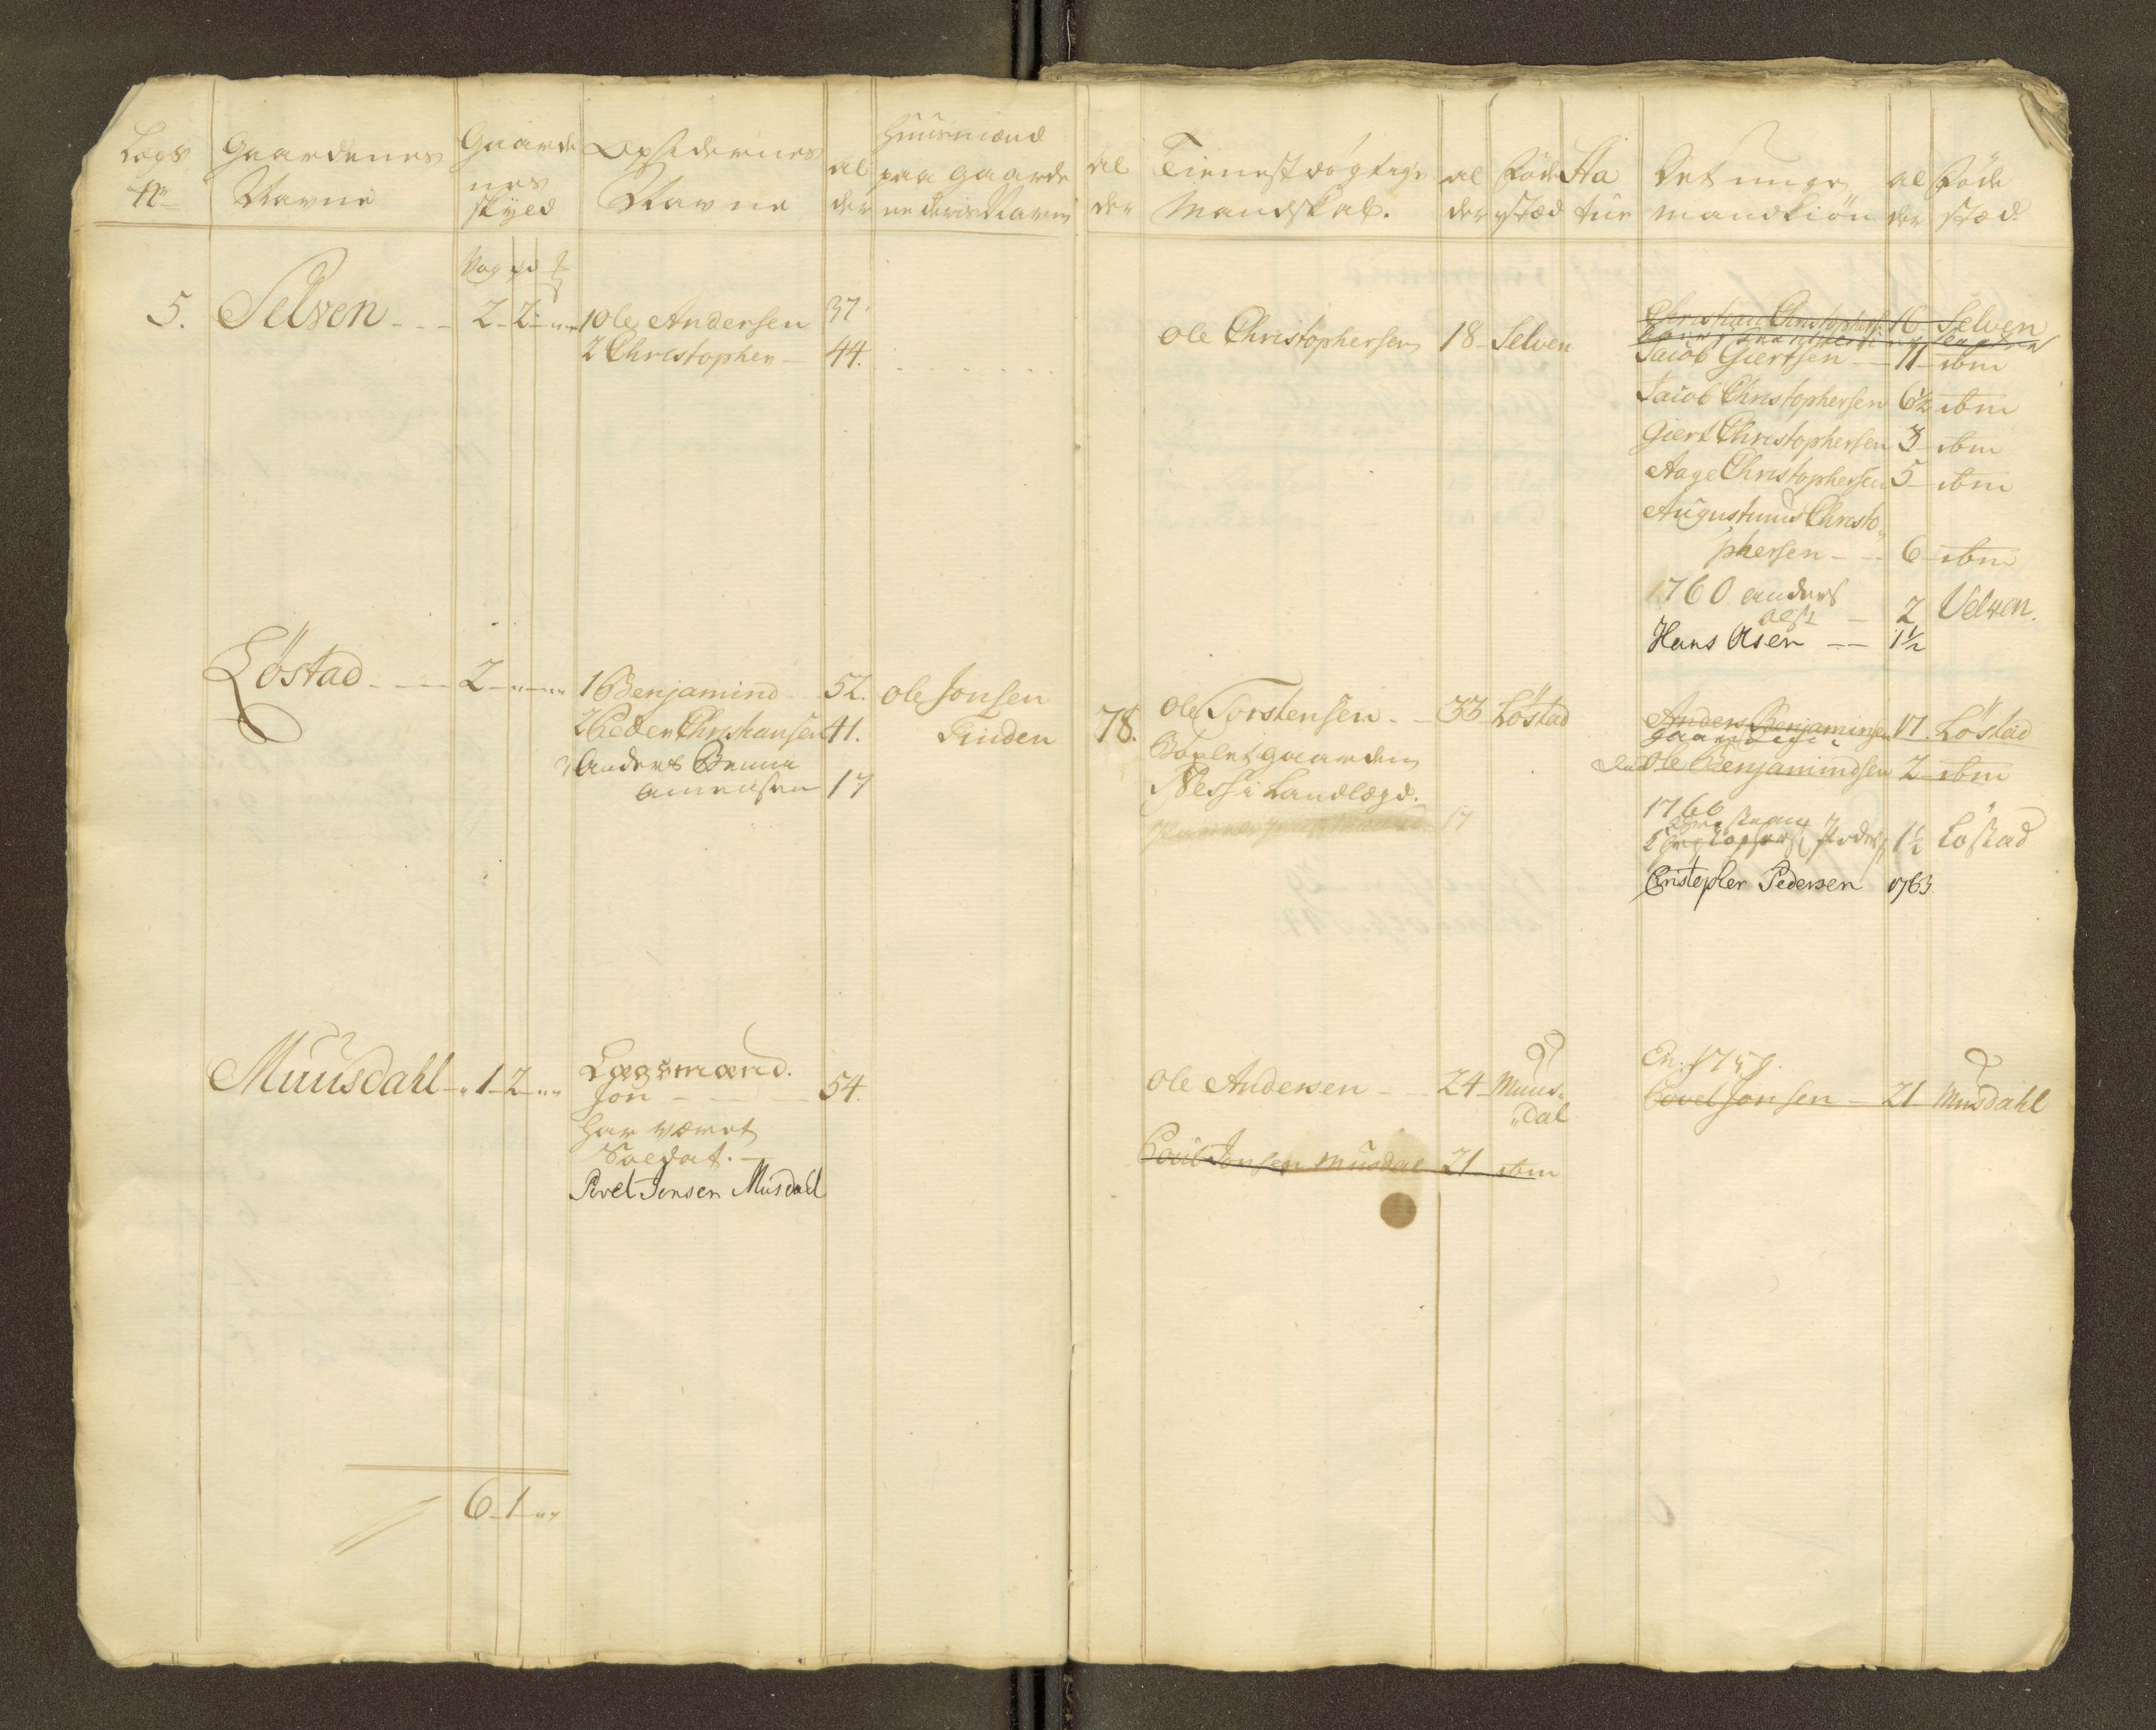 Lægs No
Gaardenes Navne
Gaardenes skyld
Opsidernes Navne
al der
Huusmænd paa gaardene deris Navne
al der
Tienestdøgtige Mandskab.
al der
Føde stæd
Ha tur
Det unge mandkiøn
al der
Føde stæd
Vog pd
5. Selven - - - 2 - 2 - 1 Ole Andersen 37
2 Christopher - 44.
Ole Christophersen 18 - Selven
Christian Christophers. 16 - Selven
Jacob Giertsen - 11 - ibm
Jacob Christophersen 6½ - ibm
Giert Christophersen 3 - ibm
Aage Christophersen 5 - ibm
Augustinus Christo-
phersen - - 6 - ibm
1760 anders
Ols. - 2 Selven.
Hans Olsen - - 1½
Løstad - - - 2 - 1 Benjamind - 52. Ole Jonsen
2 Peder Christiansen 41. Finden 78.
3 Anders Benni
amensen 17
Ole Torstensen - - 33 - Løstad
gaarden
Ness i Landlægd.
17
Anders Benjaminsen 17. Løstad
Ole Benjamindsen 2 - ibm
1760
Peders. 1½ Løstad
Cristopher Pedersen 1763.
Muusdahl - 1 - 2 - Lægsmand.
Jon - - - 54.
har været
Soldat. -
Povel Jonsen Musdal
Ole Andersen - - 24 - Muus-
dal
Poul Jonsen Musdal 21 ibm
En. 1759.
Povel Jonsen - 21 - Musdahl
6 - 1 -